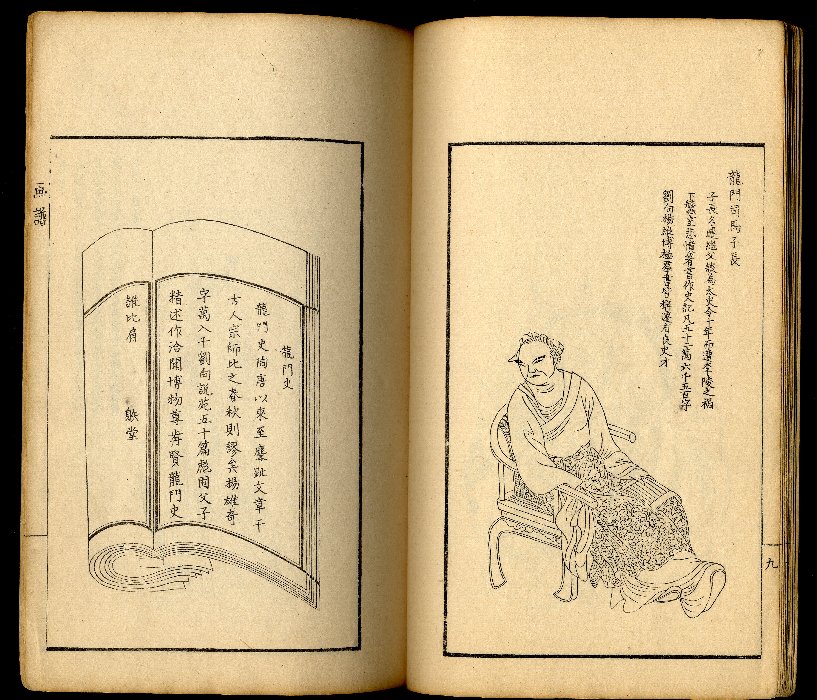 龍門司馬子長
子長名遷繼父談為太史令十年而遭李陵之禍
下蠶室悲憤著書作史記凡五十二萬六千五百字
劉向揚雄博極羣書皆稱遷有良史才
九
龍門史
龍門史尚唐以來至麐趾文章千
古人宗師比之春秋則謬矣揚雄奇
字萬八千劉向說苑五十篇彪固父子
精述作洽聞博物尊肯賢龍門史
誰比肩 堂
画譜